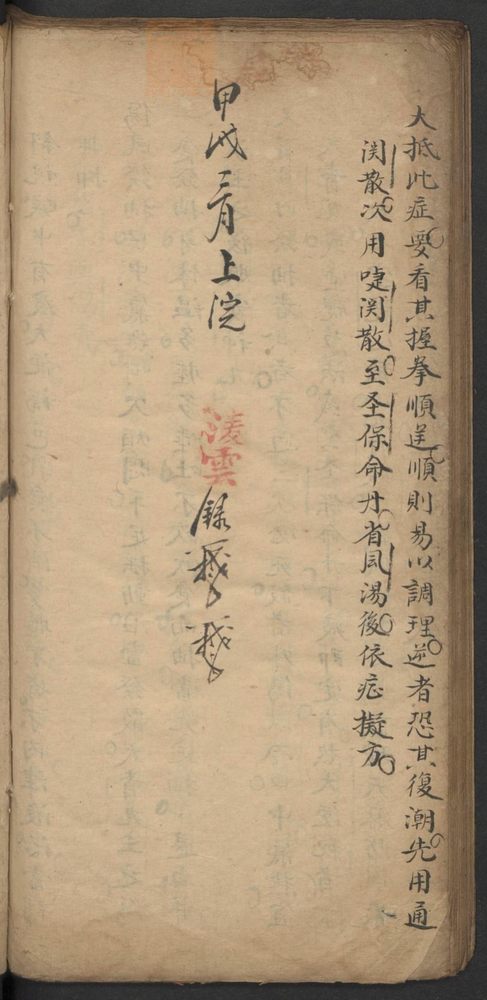 大抵此症要看其握拳順逆順則易以調理逆者恐其復潮先用通
関散次用啑関散至圣保命丹省風湯後依症擬方
甲戌二月上浣
淩雲
録